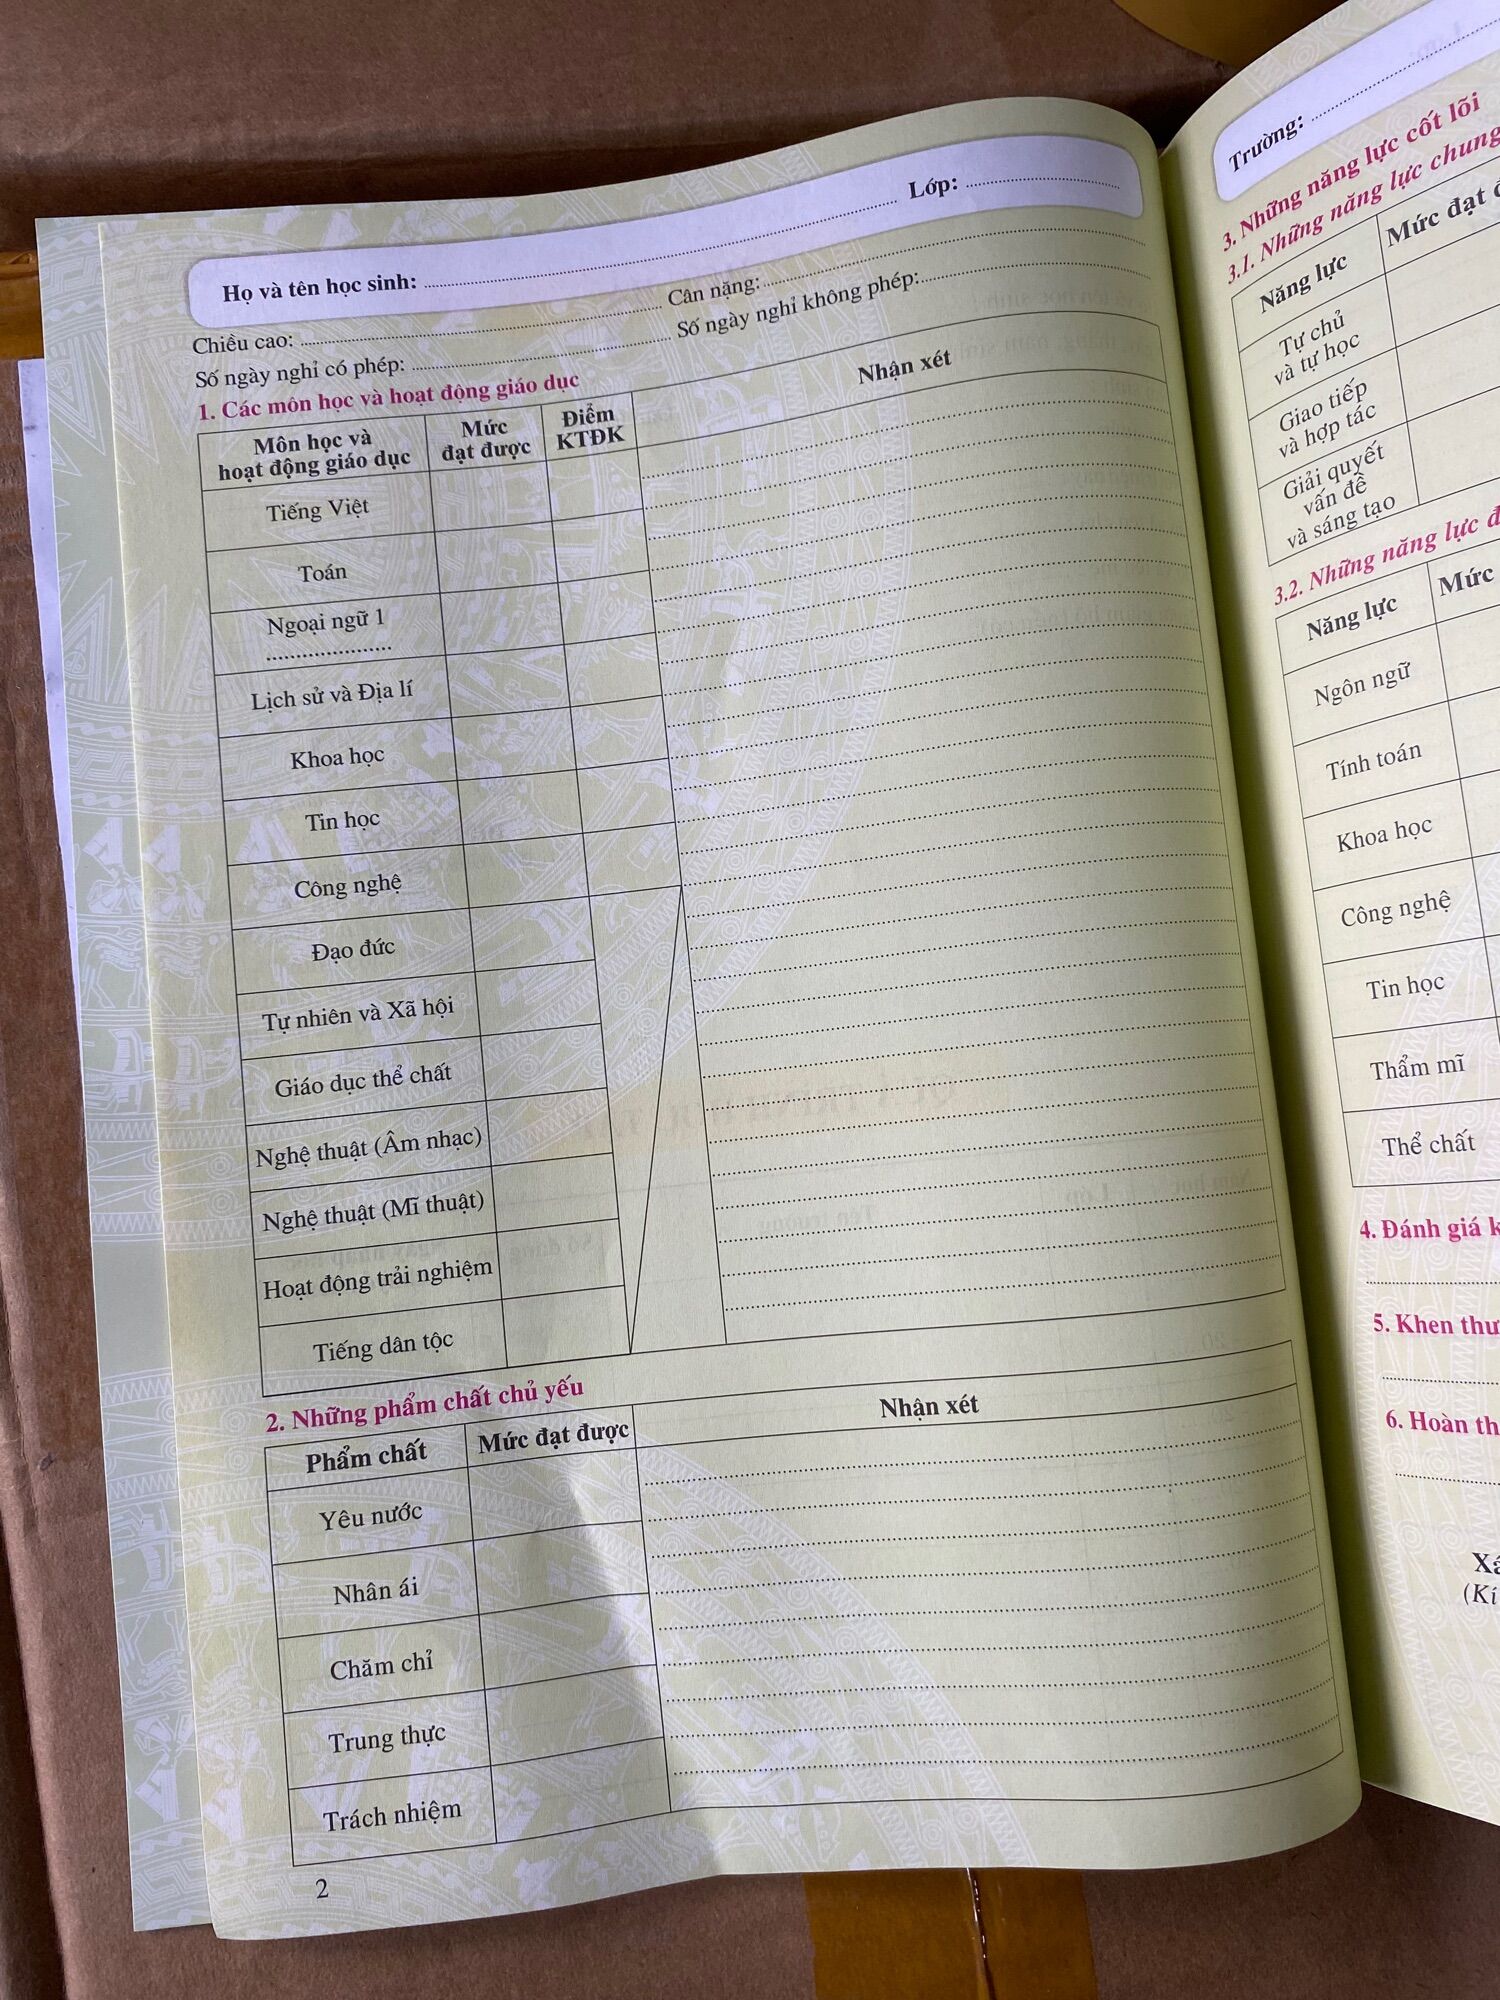 Họ và tên học sinh: Lớp:
Chiều cao: Cân nặng:
Số ngày nghỉ có phép: Số ngày nghỉ không phép:
1. Các môn học và hoạt động giáo dục
Môn học và hoạt động giáo dục
Mức đạt được
Điểm KTĐK
Nhận xét
Tiếng Việt
Toán
Ngoại ngữ 1
Lịch sử và Địa lí
Khoa học
Tin học
Công nghệ
Đạo đức
Tự nhiên và Xã hội
Giáo dục thể chất
Nghệ thuật (Âm nhạc)
Nghệ thuật (Mĩ thuật)
Hoạt động trải nghiệm
Tiếng dân tộc
2. Những phẩm chất chủ yếu
Phẩm chất
Mức đạt được
Nhận xét
Yêu nước
Nhân ái
Chăm chỉ
Trung thực
Trách nhiệm
2
Trường:
3. Những năng lực cốt lõi
3.1. Những năng lực chung
Năng lực
Mức đạt
Tự chủ
và tự học
Giao tiếp
và hợp tác
Giải quyết
vấn đề
và sáng tạo
3.2. Những năng lực
Năng lực
Mức
Ngôn ngữ
Tính toán
Khoa học
Công nghệ
Tin học
Thẩm mĩ
Thể chất
4. Đánh giá
5. Khen
6. Hoàn